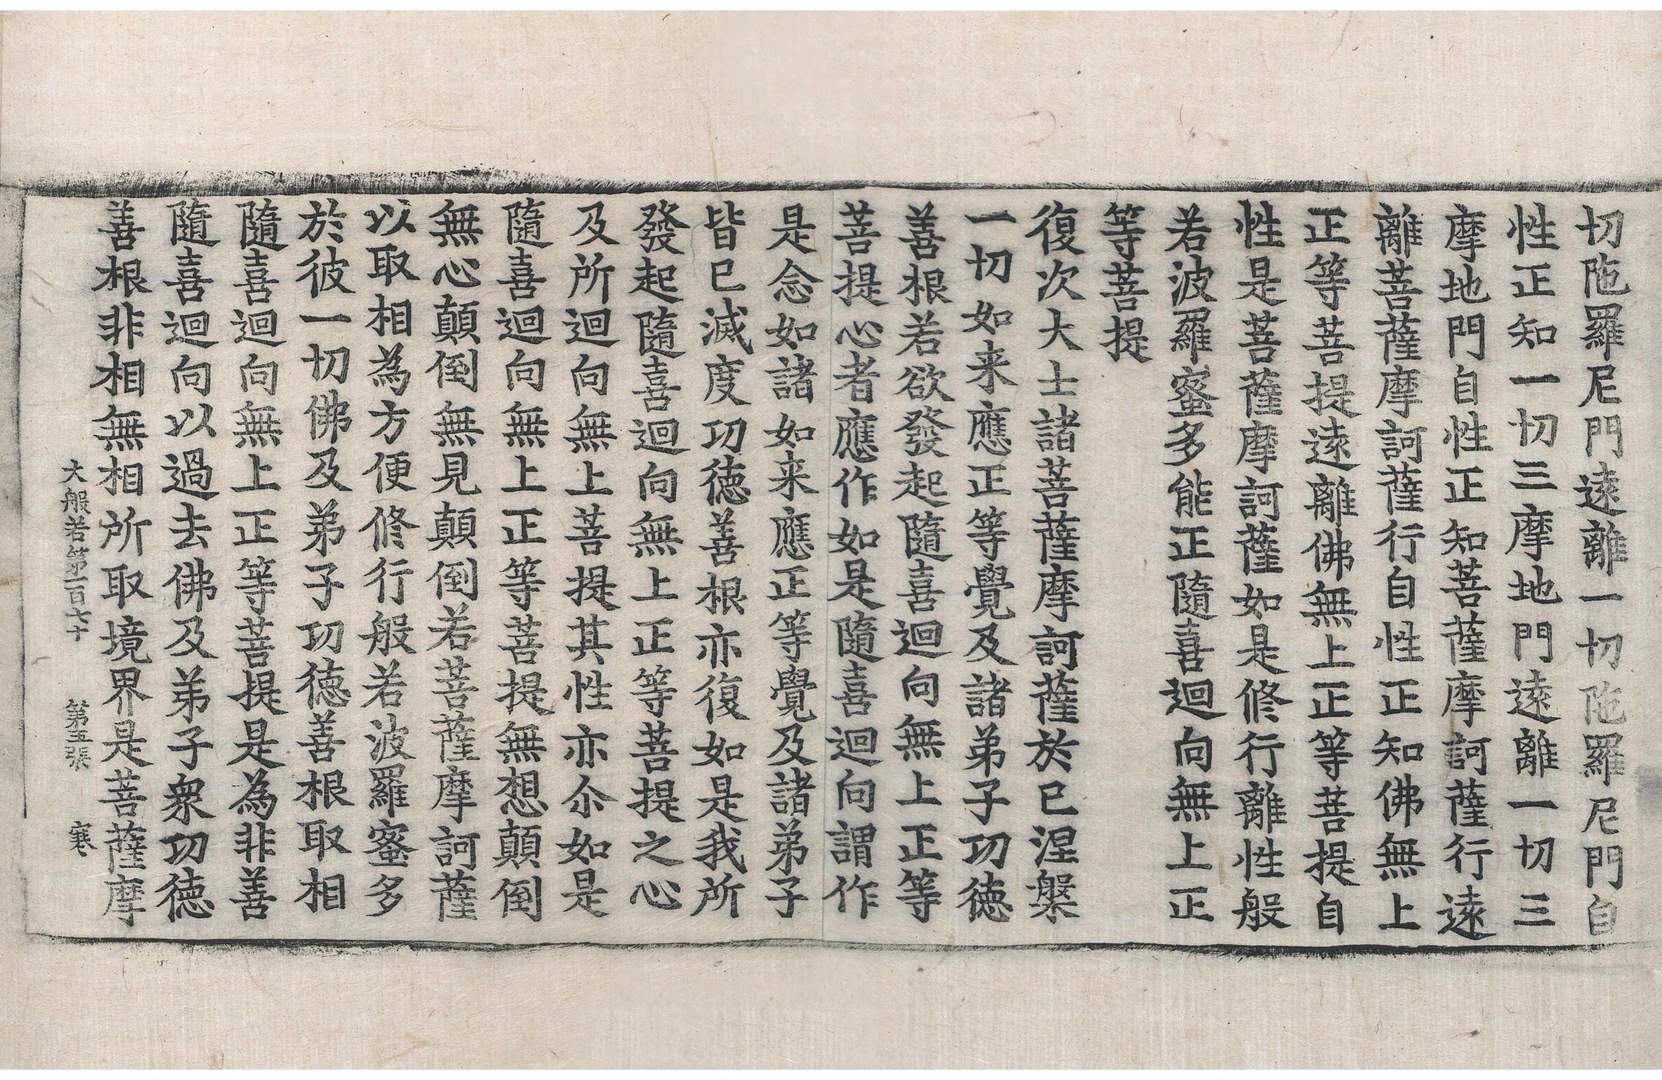 切陁羅尼門遠離一切陁羅尼門自
性正知一切三摩地門遠離一切三
摩地門自性正知菩薩摩訶薩行遠
離菩薩摩訶薩行自性正知佛無上
正等菩提遠離佛無上正等菩提自
性是菩薩摩訶薩如是修行離性般
若波羅蜜多能正隨喜迴向無上正
等菩提
復次大士諸菩薩摩訶薩於已涅槃
一切如来應正等覺及諸弟子功德
善根若欲發起隨喜迴向無上正等
菩提心者應作如是隨喜迴向謂作
是念如諸如来應正等覺及諸弟子
皆已滅度功德善根亦復如是我所
發起隨喜迴向無上正等菩提之心
及所迴向無上菩提其性亦尒如是
隨喜迴向無上正等菩提無想顛倒
無心顛倒無見顛倒若菩薩摩訶薩
以取相為方便修行般若波羅蜜多
於彼一切佛及弟子功德善根取相
隨喜迴向無上正等菩提是為非善
隨喜迴向以過去佛及弟子衆功德
善根非相無相所取境界是菩薩摩
大般若第一百七十 第五張 寒